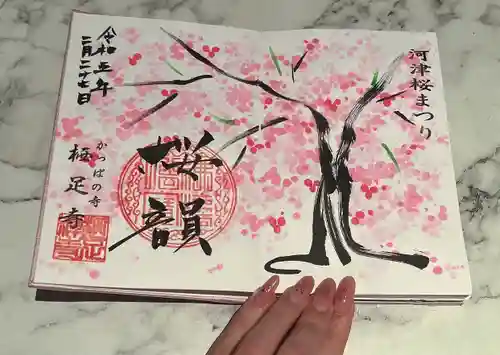 河津桜まつり
桜韻
令和五年
二月二十七日
かっぱの寺
栖足寺